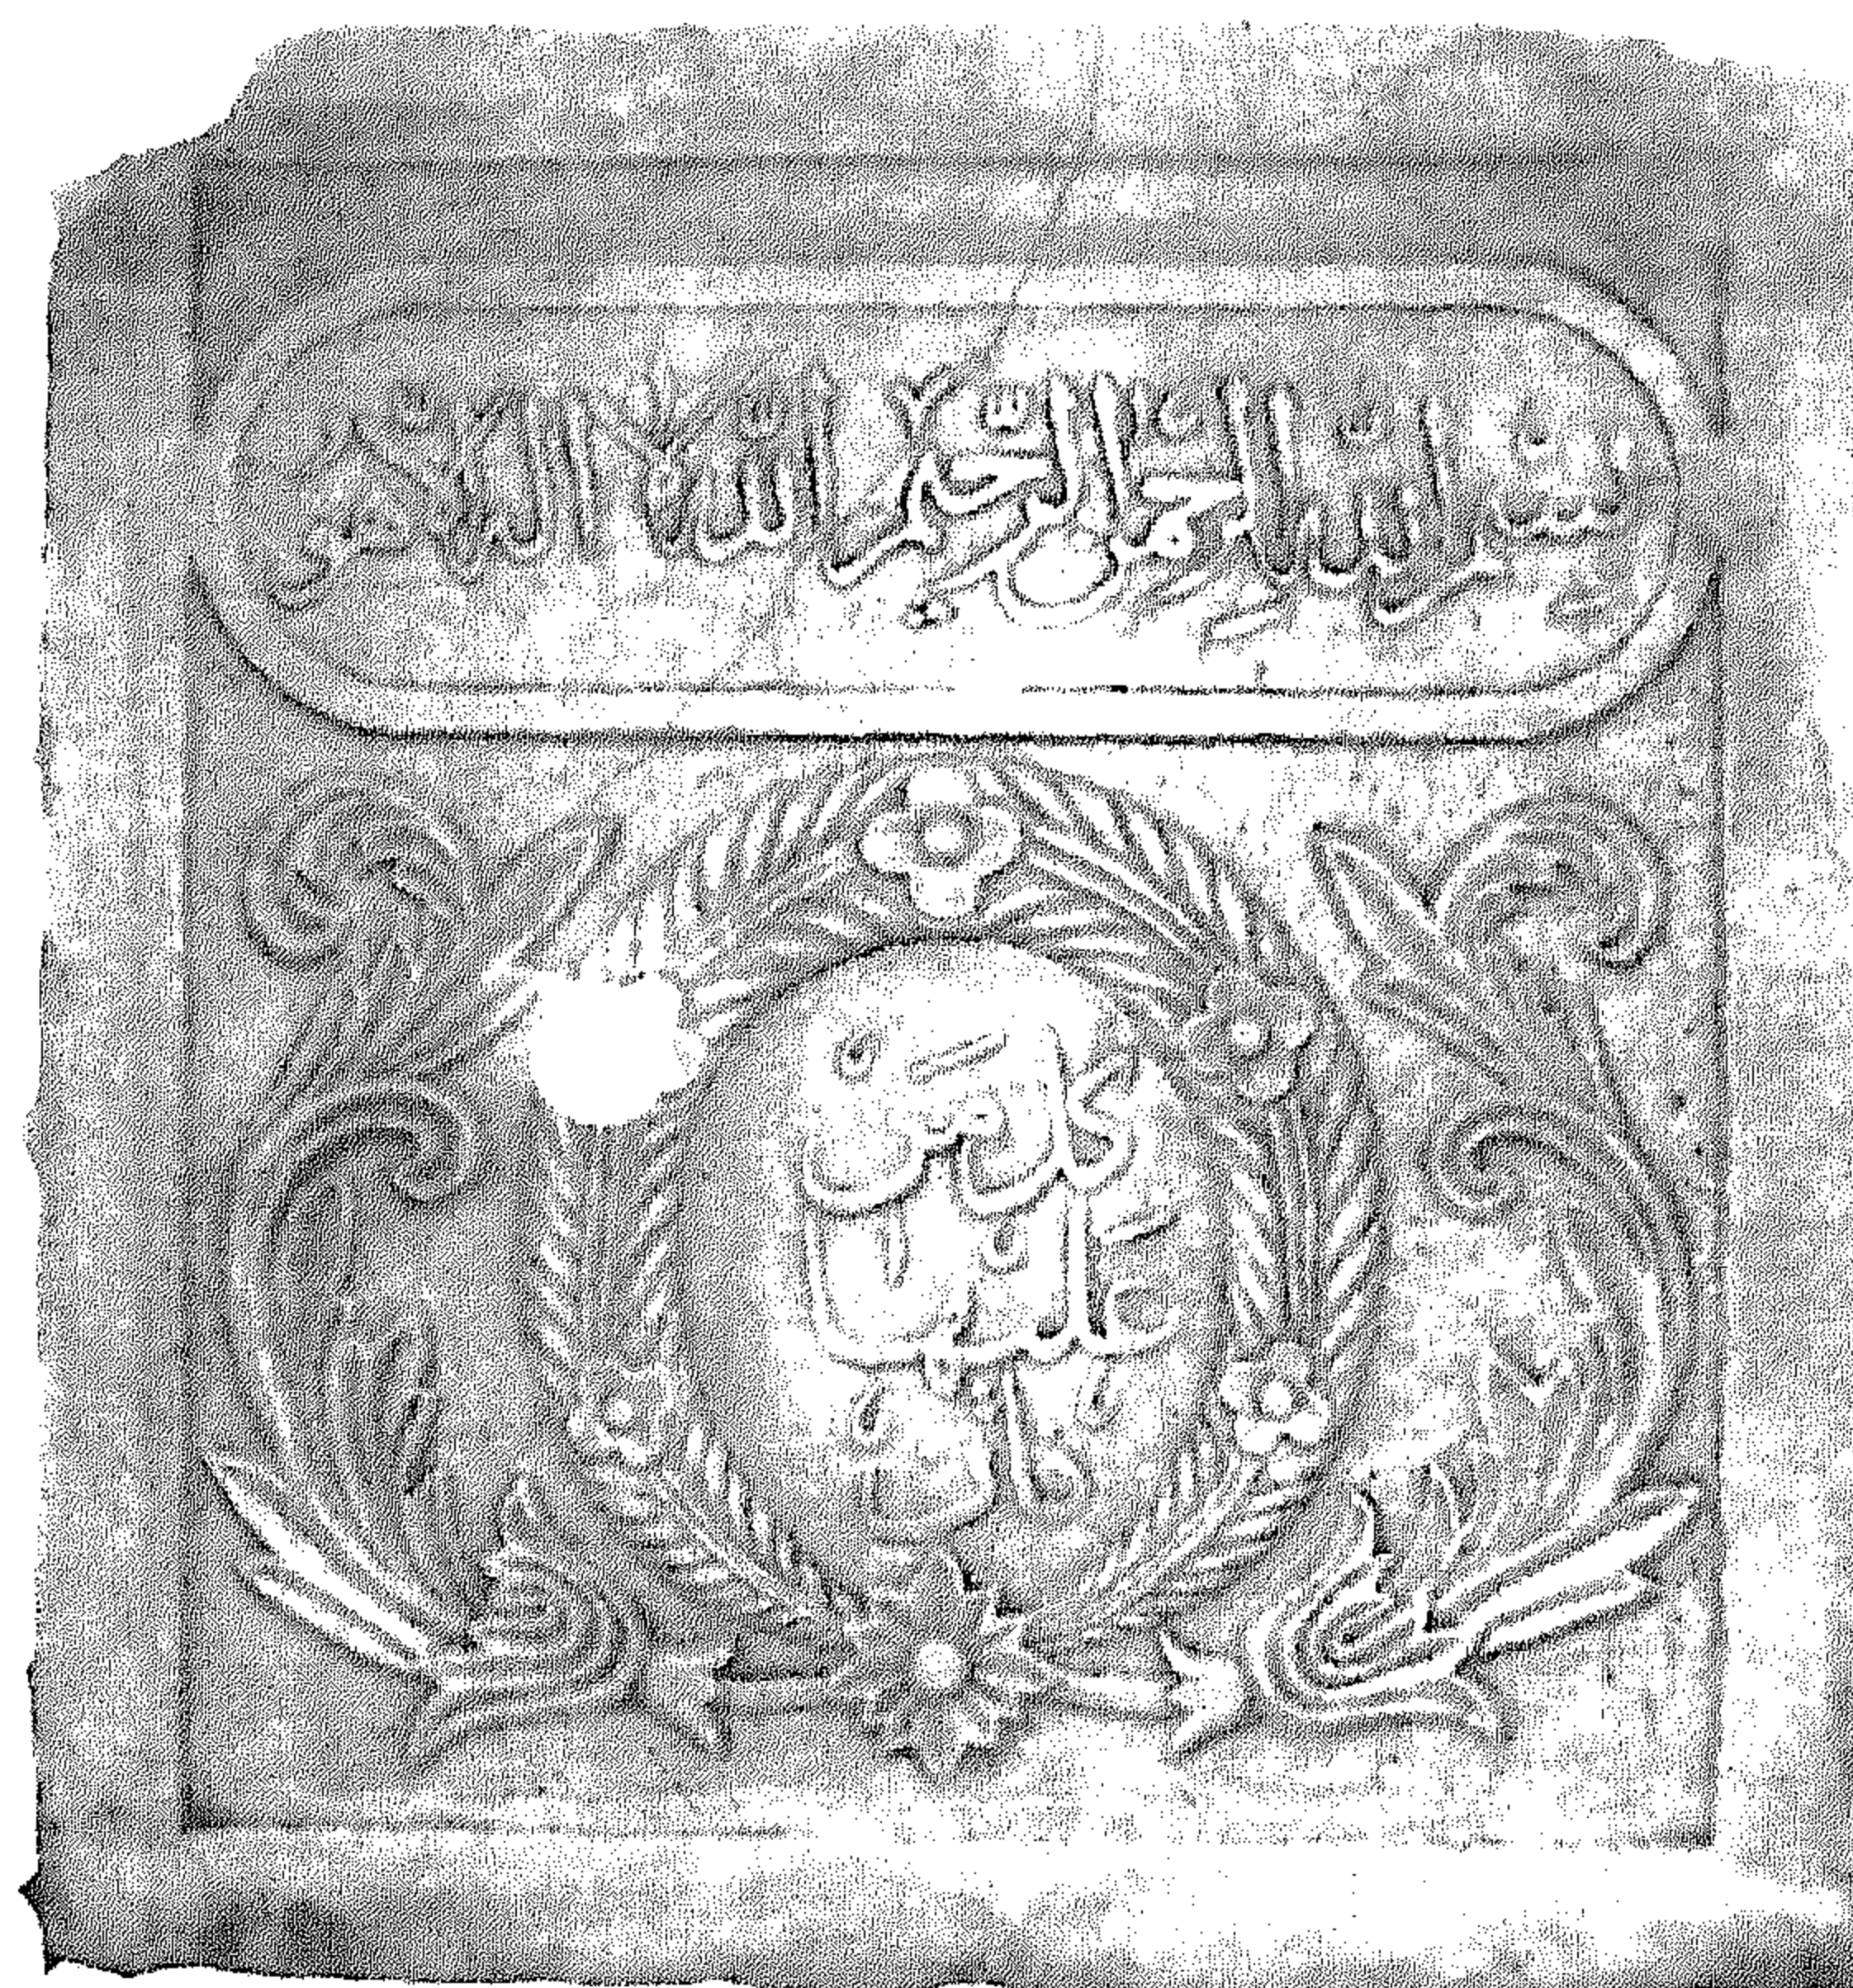 بسم الله الرحمن الرحيم الله لا اله الا هو
كل من
عليها
فان